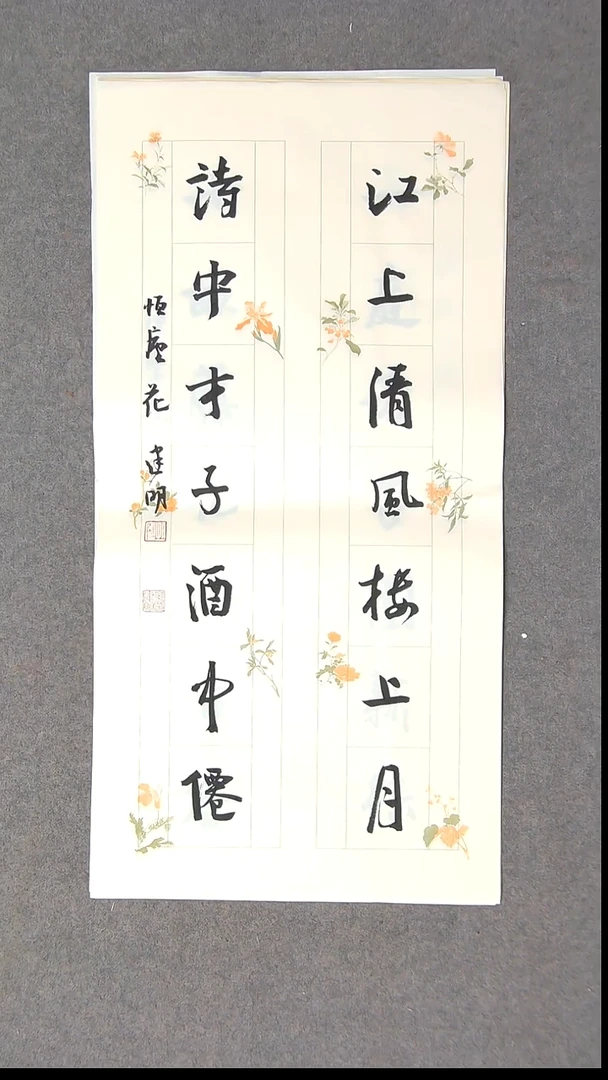 江上清風楼上月
詩中才子酒中僊
恒廬 花建明